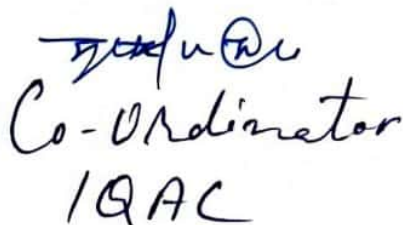 Co-Ordinator
IQAC